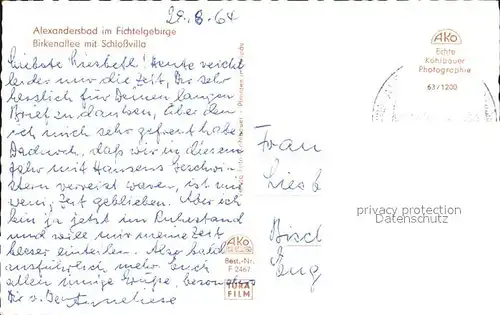 29.8.64
Alexandersbad im Fichtelgebirge
Birkenallee mit Schloßvilla
AKO
Echte
Kohlbauer
Photographie
63/1200
Liebste Liesbeth! Heute reicht
leider nur die Zeit, Dir sehr
herzlich für Deinen langen
Brief zu danken, über den
ich mich sehr gefreut habe.
Dadurch, daß wir in diesem
Jahr mit Hansens Geschwi-
stern verreist waren, ist nur
wenig Zeit geblieben. Aber ich
bin ja jetzt im Ruhestand
und will mir meine Zeit
besser einteilen. Also bald
ausführlich mehr. Euch
allen innige Grüße, besonders
Dir v. Deiner Anneliese
Frau
Liesb
privacy protection
Datenschutz
Bisch
AKO
Best.-Nr.
F 2467
TURA
FILM